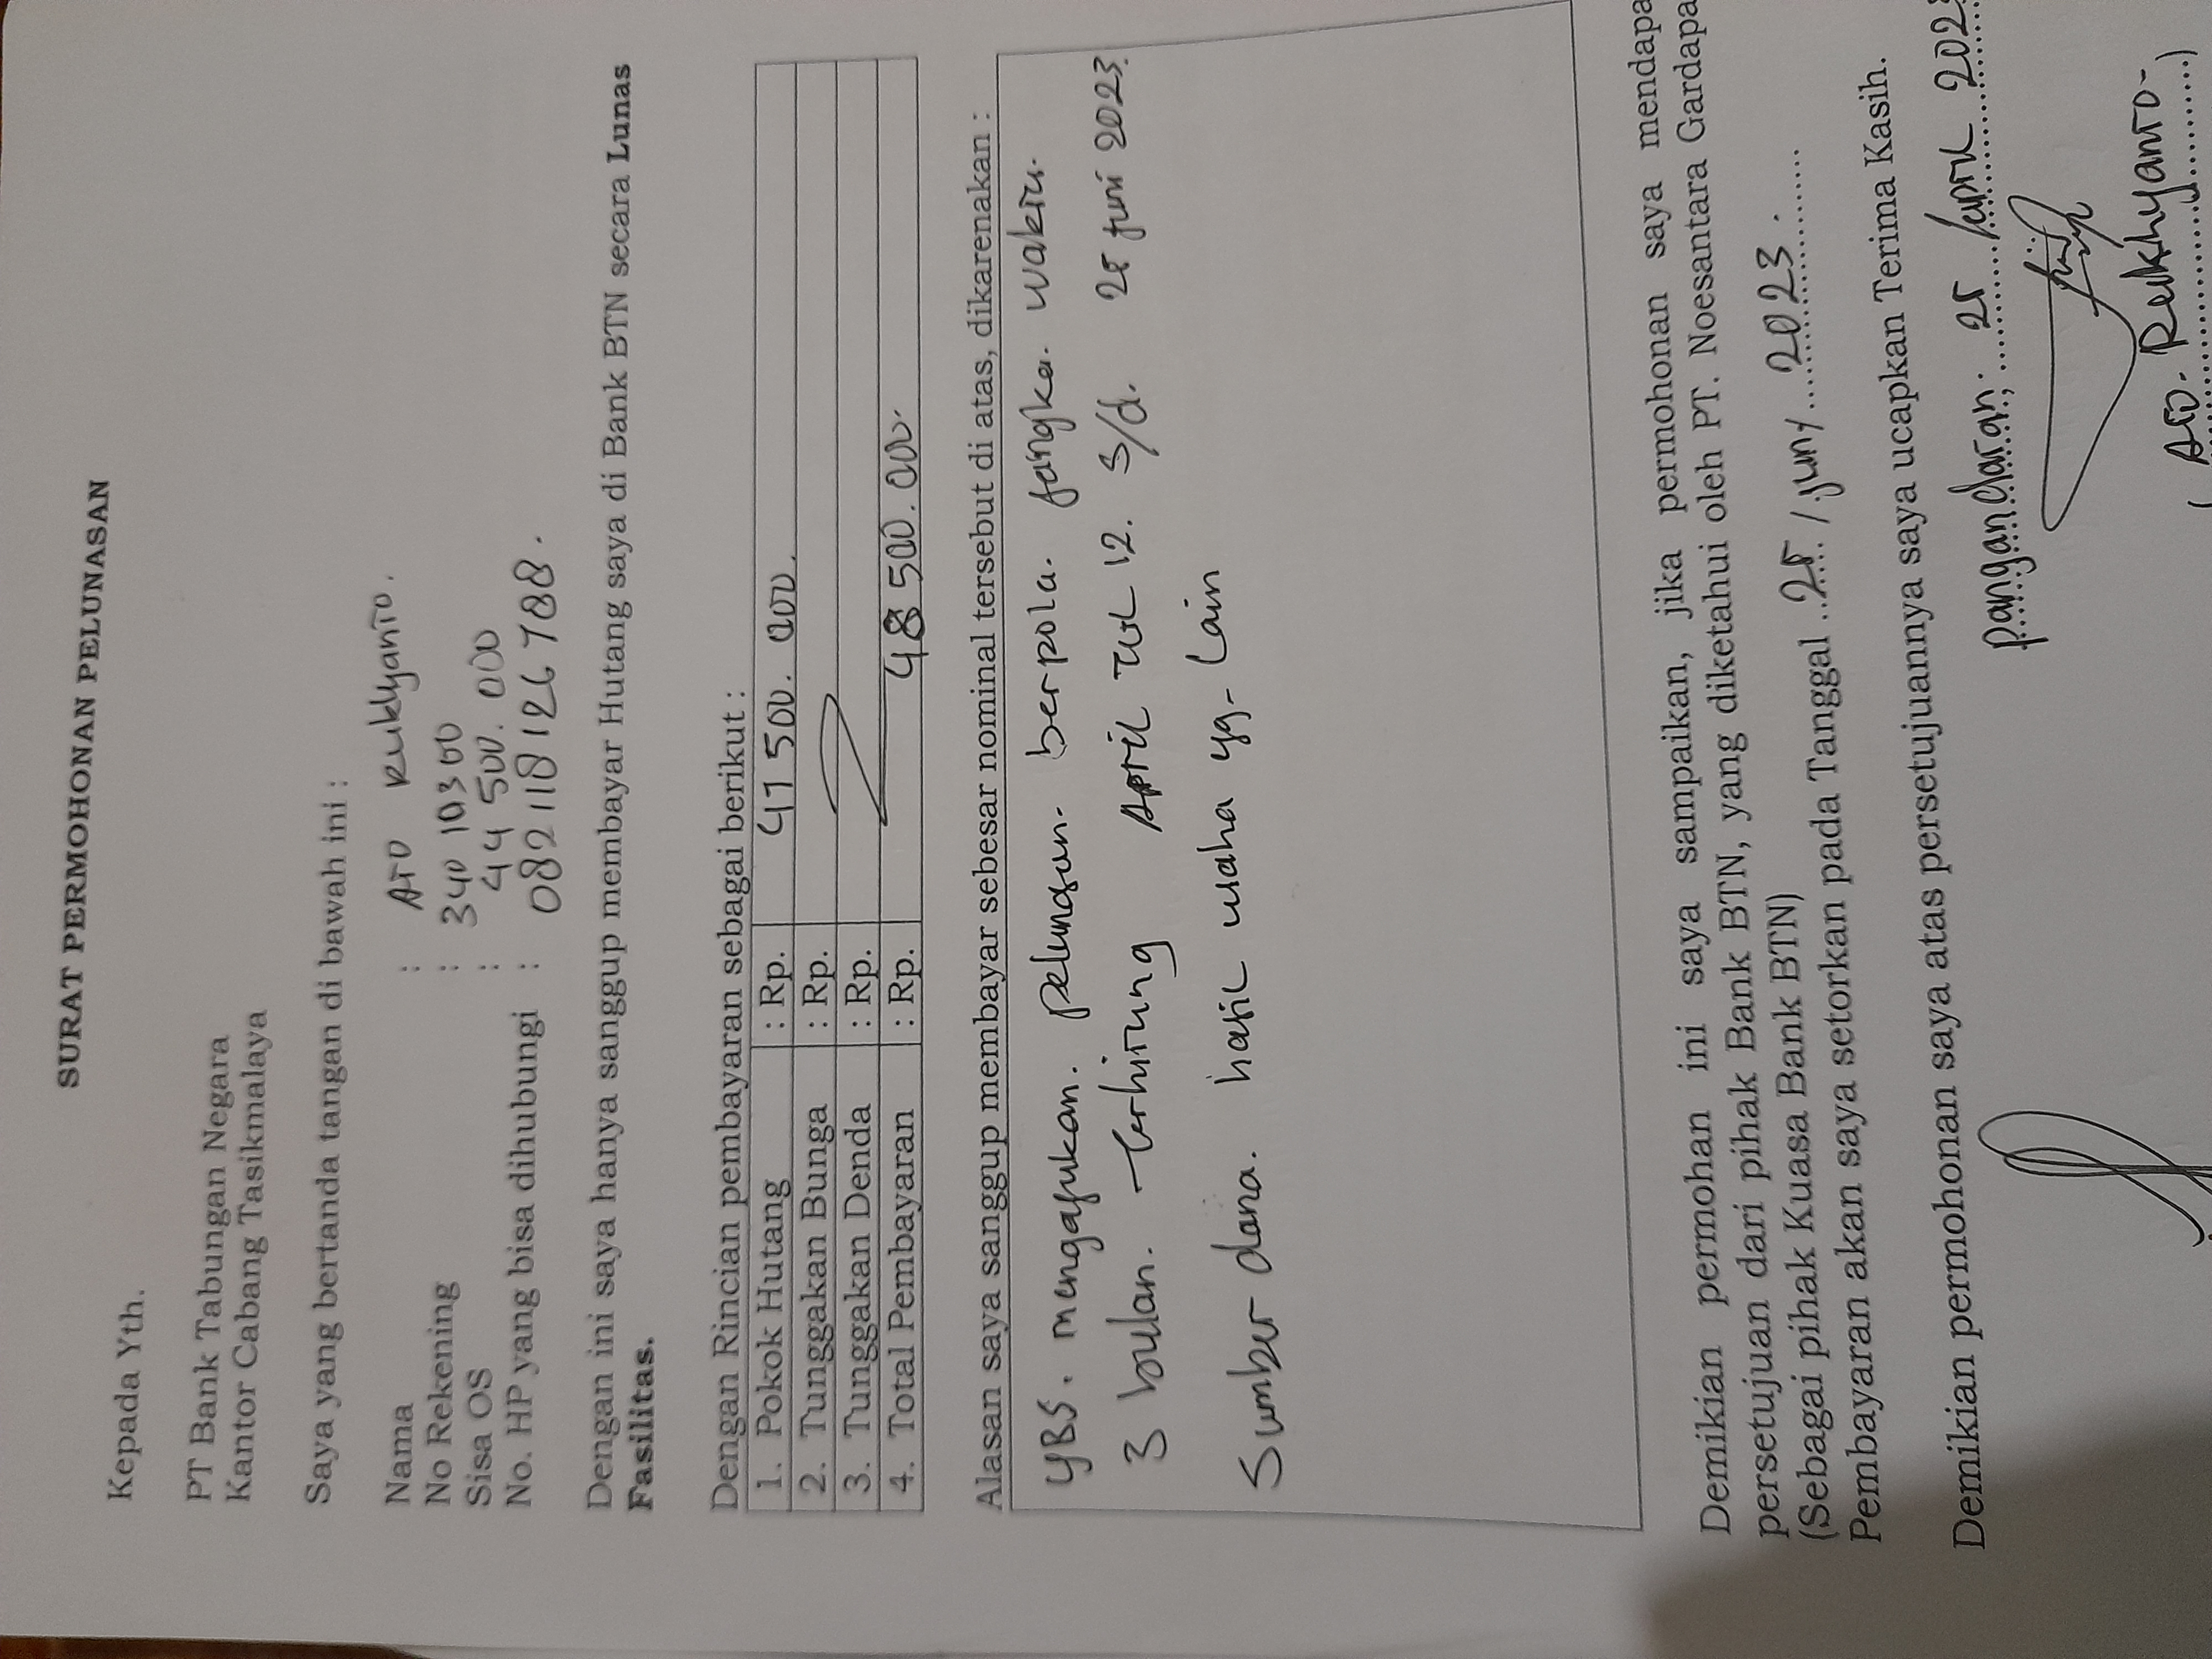 SURAT PERMOHONAN PELUNASAN
Kepada Yth.
PT Bank Tabungan Negara
Kantor Cabang Tasikmalaya
Saya yang bertanda tangan di bawah ini :
Nama :
No Rekening : 340 10300
Sisa OS : 44 500. 000
No. HP yang bisa dihubungi : 082 118 126 788.
Dengan ini saya hanya sanggup membayar Hutang saya di Bank BTN secara Lunas
Fasilitas.
Dengan Rincian pembayaran sebagai berikut :
1. Pokok Hutang : Rp. 500. 000.
2. Tunggakan Bunga : Rp.
3. Tunggakan Denda : Rp.
4. Total Pembayaran : Rp. 48 500. 000.
Alasan saya sanggup membayar sebesar nominal tersebut di atas, dikarenakan :
YBS. mengajukan. pelunasan. berpola. jangka. waktu.
3 bulan. terhitung April s/d. 25 juni 2023.
Sumber dana. hasil usaha yg. Lain
Demikian permohan ini saya sampaikan, jika permohonan saya mendapa
persetujuan dari pihak Bank BTN, yang diketahui oleh PT. Noesantara Gardapa
(Sebagai pihak Kuasa Bank BTN)
Pembayaran akan saya setorkan pada Tanggal ..25../.juny...2023.
Demikian permohonan saya atas persetujuannya saya ucapkan Terima Kasih.
pangandaran, 25 April 202